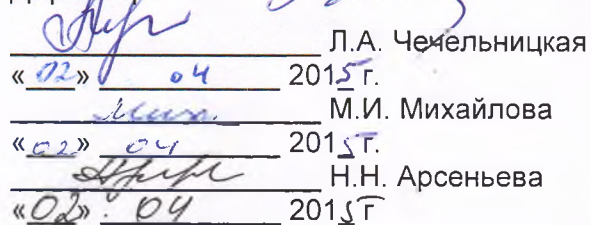 Л.А. Чечельницкая
«02» 04 2015 г.
М.И. Михайлова
«02» 04 2015 г.
Н.Н. Арсеньева
«02» 04 2015 г